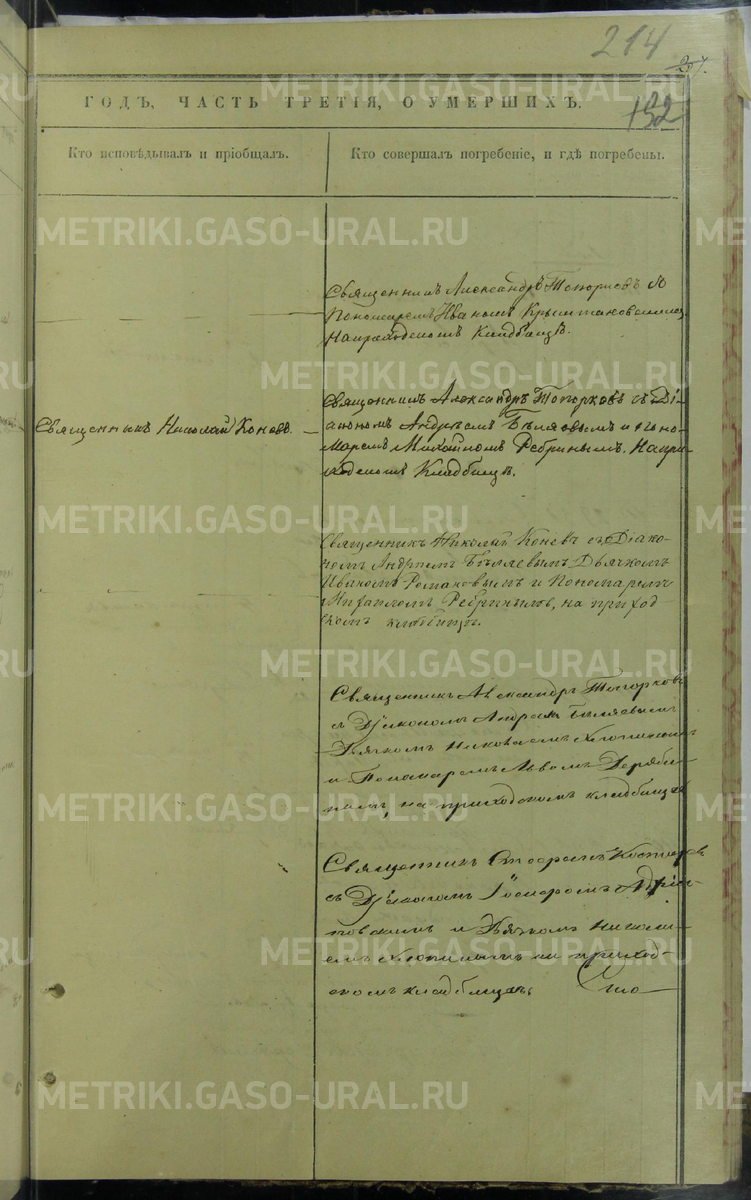 214
207.
132
ГОДЪ, ЧАСТЬ ТРЕТІЯ, О УМЕРШИХЪ.
Кто исповѣдывалъ и пріобщалъ.
Кто совершалъ погребеніе, и гдѣ погребены.
Священникъ Александръ Топорковъ съ
Пономаремъ Иваномъ
На приходскомъ Кладбищѣ.
Священникъ Николай Коневъ.
Священникъ Александръ Топорковъ съ Ді-
акономъ Андреемъ Бѣляевымъ и Поно-
маремъ Михаиломъ Ребринымъ. На при-
ходскомъ Кладбищѣ.
Священникъ Николай Коневъ съ Діако-
номъ Андреемъ Бѣляевымъ Дьячкомъ
Иваномъ Романовымъ и Пономаремъ
Михаиломъ Ребринымъ, на приход
скомъ кладбищѣ.
Священникъ Александръ Топорковъ
съ Діакономъ Андреемъ Бѣляевымъ
Дьячкомъ Николаемъ Хлопинымъ
и Пономаремъ Львомъ Деряби-
нымъ, на приходскомъ кладбищѣ
Священникъ Стефанъ
съ Діакономъ
и Дьячкомъ Никола-
емъ Хлопинымъ на приход-
скомъ кладбищѣ.
METRIKI.GASO-URAL.RU